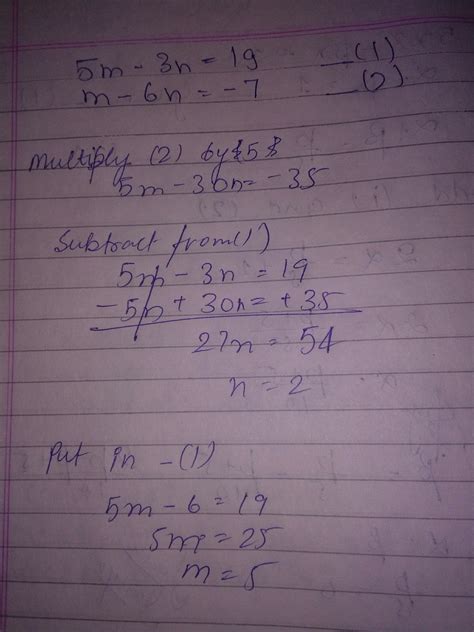 5m - 3n = 19 —(1)
m - 6n = -7 —(2)
Multiply (2) by 5
5m - 30n = -35
Subtract from (1)
5m - 3n = 19
-5m + 30n = +35
27n = 54
n = 2
Put in -(1)
5m - 6 = 19
5m = 25
m = 5